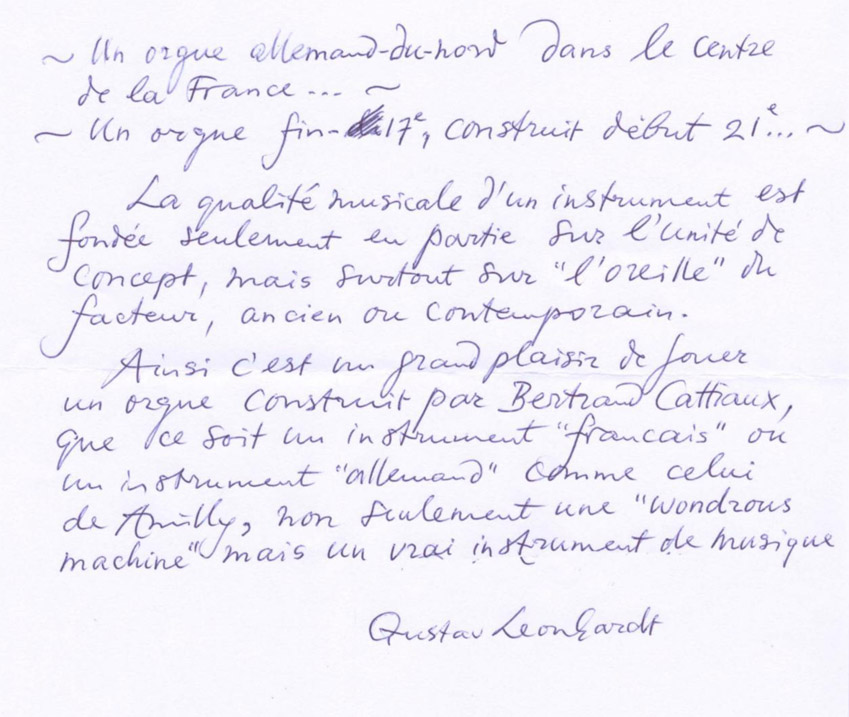 ~ Un orgue allemand-du-nord dans le centre
de la France... ~
~ Un orgue fin-17e, construit début 21e... ~
La qualité musicale d'un instrument est
fondée seulement en partie sur l'unité de
concept, mais surtout sur "l'oreille" du
facteur, ancien ou contemporain.
Ainsi c'est un grand plaisir de jouer
un orgue construit par Bertrand Cattiaux,
que ce soit un instrument "francais" ou
un instrument "allemand" comme celui
de Amilly, non seulement une "wondrous
machine" mais un vrai instrument de musique
Gustav Leonhardt